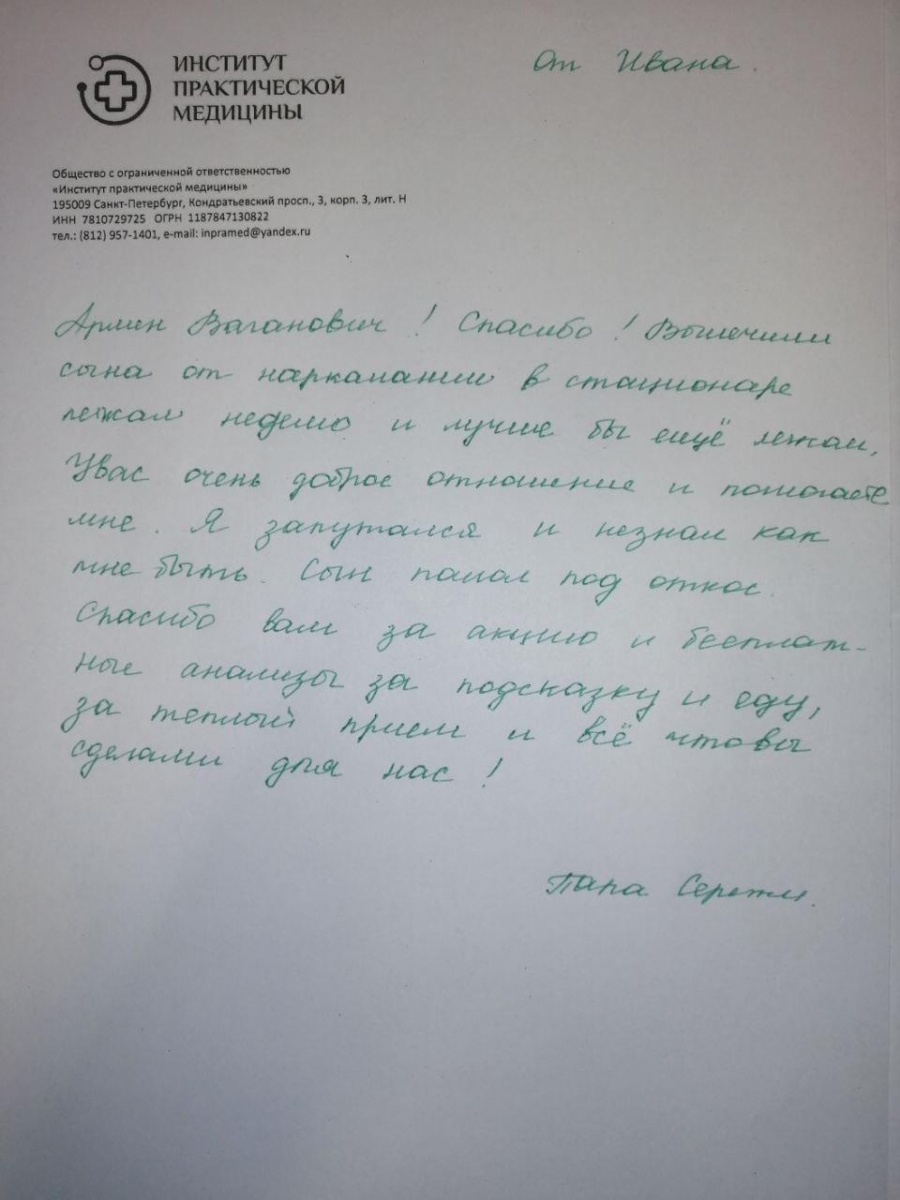 ИНСТИТУТ
ПРАКТИЧЕСКОЙ
МЕДИЦИНЫ
От Ивана.
Общество с ограниченной ответственностью
«Институт практической медицины»
195009 Санкт-Петербург, Кондратьевский просп., 3, корп. 3, лит. Н
ИНН 7810729725 ОГРН 1187847130822
тел.: (812) 957-1401, e-mail: inpramed@yandex.ru
Армен Ваганович! Спасибо! Вылечили
сына от наркамании в стационаре
лежал неделю и лучше бы ещё лежал,
Увас очень доброе отношение и помогаете
мне. Я запутался и незнал как
мне быть. Сын папал под откос.
Спасибо вам за акцию и бесплат-
ные анализы за подсказку и еду,
за теплый прием и всё чтовы
сделали для нас!
Папа Сережи.